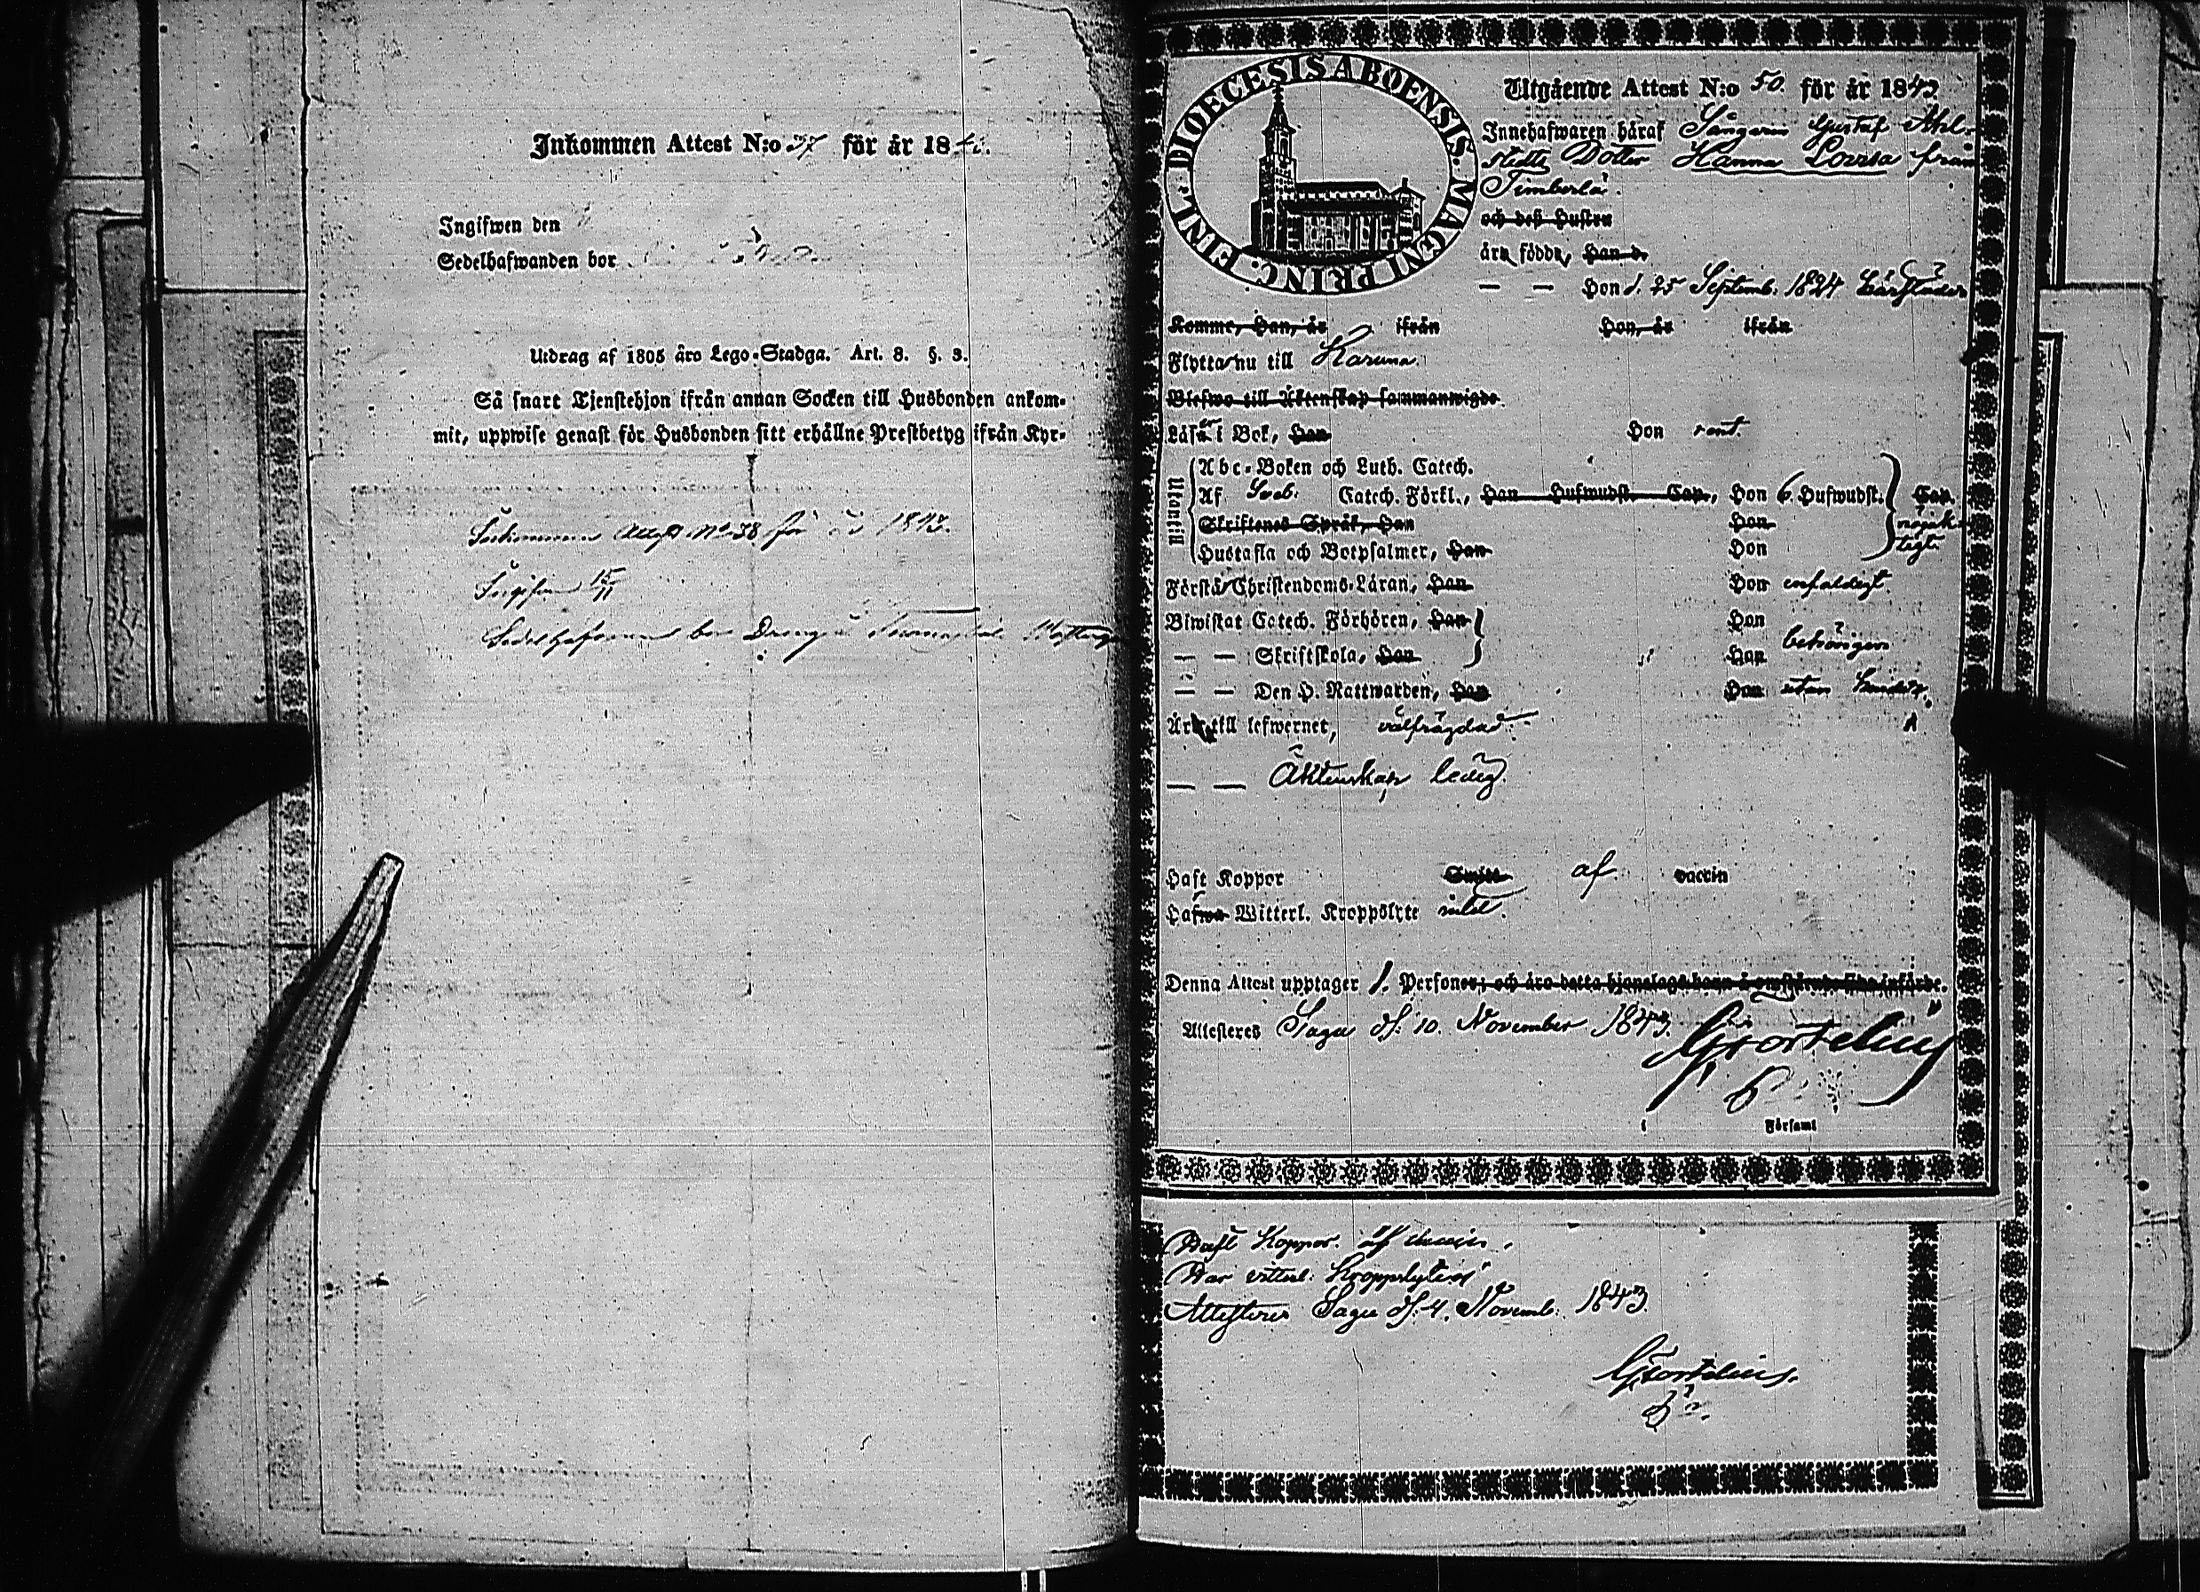 Inkommen Attest N:o 37 för år 18
Ingifwen den
Sedelhafwanden bor
Utdrag af 1805 års Lego-Stadga. Art. 8. §. 3.
Så snart Tjenstehjon ifrån annan Socken till Husbonden ankom-
mit, uppwise genast för Husbonden sitt erhållne Prestbetyg ifrån Kyr-
Inkommen Attest No 38 för år 1843.
Ingifven 15/11
Sedelhafvanden bor Dreng
FINL. DIOECESIS ABOENSIS. MAGNI PRINC.
Utgående Attest N:o 50. för år 1843
Innehafwaren häraf Gustaf Ahl-
stedts Dotter Hanna Lovisa från
Timberla.
och dess Hustru
äro födde, Han d.
— — Hon d. 25 Septemb: 1824
Komme, Han, år ifrån Hon, år ifrån
Flytta nu till Karuna.
Blefwo till Äktenskap sammanwigde
Läser i Bok, Han Hon rent.
Utantill
Abc-Boken och Luth. Catech.
Af Sveb. Catech. Förkl., Han Hufwudst. Cap., Hon 6 Hufwudst. Cap.
Skriftenes Språk, Han Hon nöjak-
Hustafla och Botpsalmer, Han Hon tigt.
Förstå Christendoms-Läran, Han Hon enfaldigt.
Biwistat Catech. Förhören, Han Hon
— — Skriftskola, Han Hon behörigen
— — Den H. Nattwarden, Han Hon utan hinder.
Är till lefwernet, välfrägdad.
— — Äktenskap ledig.
Haft Koppor af vaccin
Hafwa Witterl. Kroppslyte intet.
Denna Attest upptager 1. Personer, och äro detta hjonelags barn å omstående sida införde.
Attesteres Sagu d. 10. November 1843.
G Fortelius
i Församl
Haft Koppor. af vaccin.
Har vitterl: Kroppslyte
Attesteres Sagu d. 4. Novemb: 1843
G Fortelius.